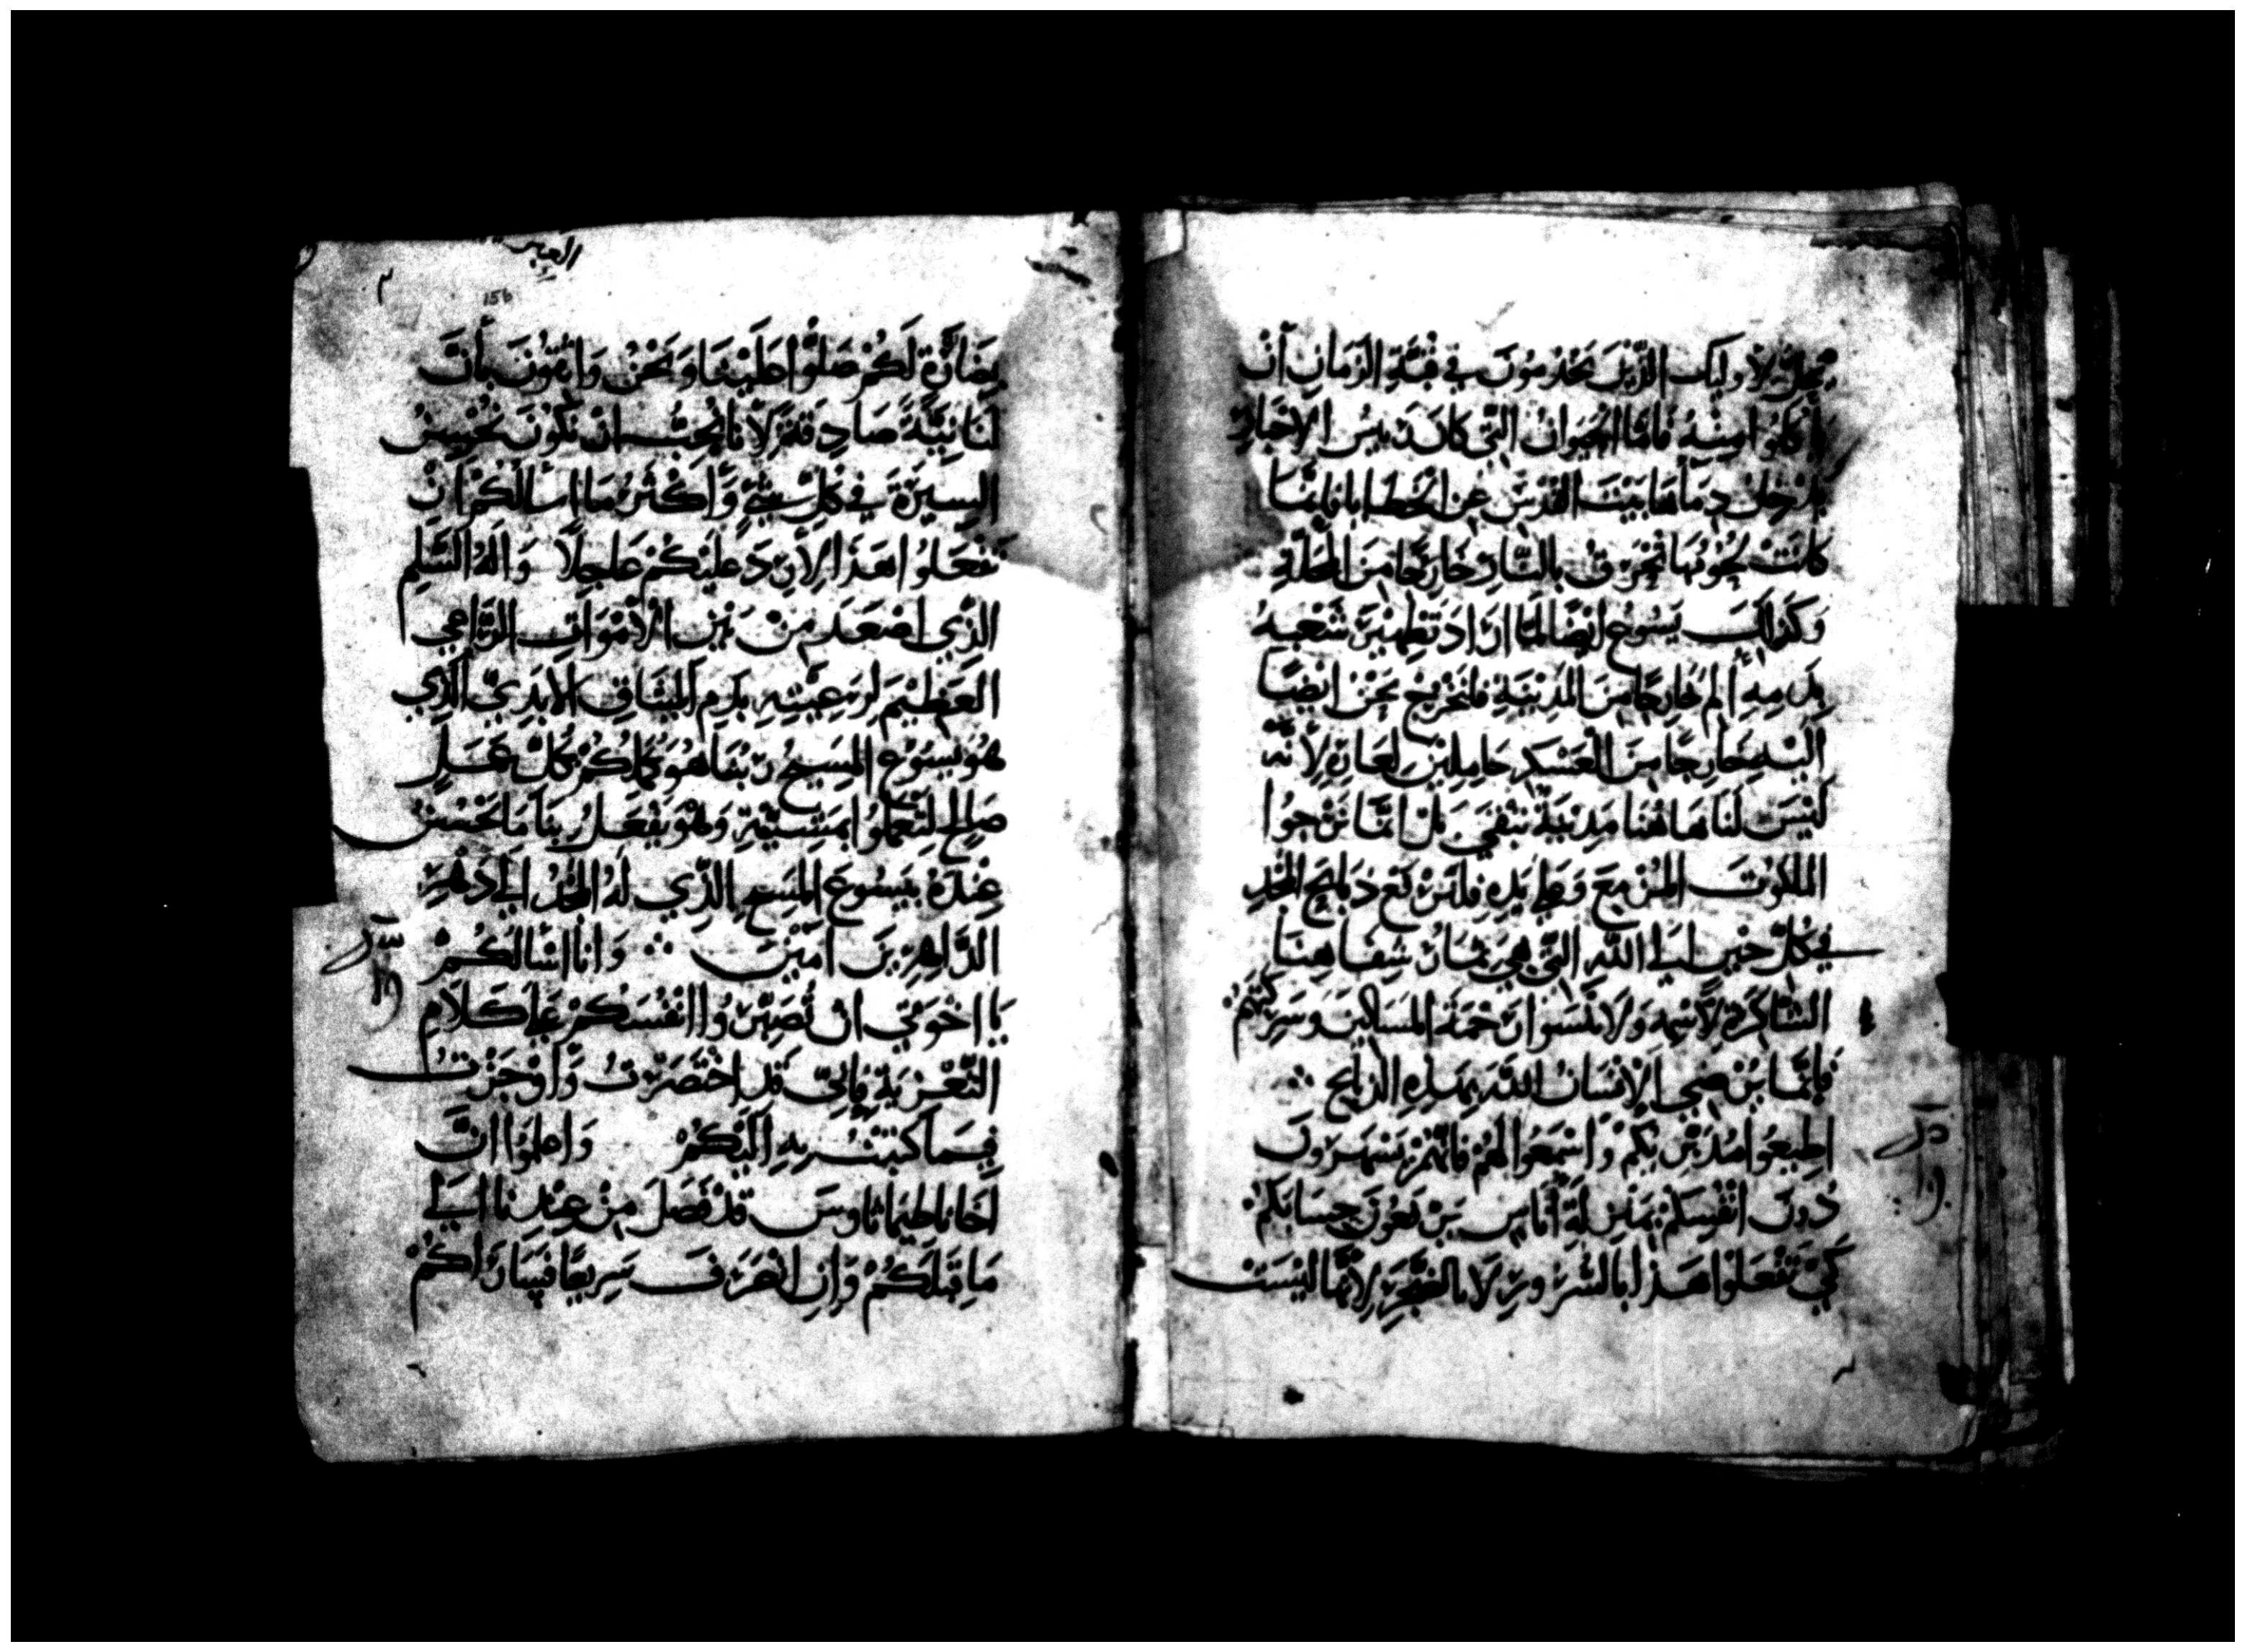 يحل لاوليك الذين يخدمون في قبة الزمان ان
ياكلوا منه فاما الحيوان التي كان رييس الاحبار
يدخل دماها بيت القدس عن الخطايا فانما
كانت لحومها تحرق بالنار خارجا من المحلة
وكذلك يسوع ايضا لما اراد تطهير شعبه
بدمه الم خارجا من المدينة فلنخرج نحن ايضا
اليه خارجا من العسكر حاملين لعاره لانه
ليس لنا هاهنا مدينة تبقي بل انما نرجوا
الملكوت المزمع وعلي يده فلنرفع ذبايح الحمد
في كل حين الي الله التي هي ثمار شفاهنا
الشاكرة لاسمه ولا تنسوا رحمة المساكين وشركتهم
فانما يرضي الانسان الله بهذه الذبايح
اطيعوا مدبريكم واسمعوا لهم فانهم يسهرون
دون انفسكم بمنزلة اناس يرفعون حسابكم
كي تفعلوا هذا بالسرور لا بالضجر لانها ليست
العبر
156
بضارة لكم صلوا علينا ونحن واثقون بان
لنا نية صادقة لانا نحب ان نكون نحسن
السيرة في كل شي واكثر ما اسالكم ان
تفعلوا هذا لارد عليكم عاجلا واله السلم
الذي اصعد من بين الاموات الراعي
العظيم لرعيته بدم الميثاق الابدي الذي
هو يسوع المسيح ربنا هو يكملكم بكل عمل
صالح لتعملوا بمشيته وهو يفعل بنا ما يحسن
عنده بيسوع المسيح الذي له المجد الي دهر
الداهرين امين ∴ وانا اسالكم
يا اخوتي ان تصبروا انفسكم علي كلام
التعزية فاني قد اختصرت واوجزت
فيما كتبت به اليكم واعلموا ان
اخانا طيماثاوس قد فصل من عندنا الي
ما قبلكم وان انصرف سريعا فسياراكم